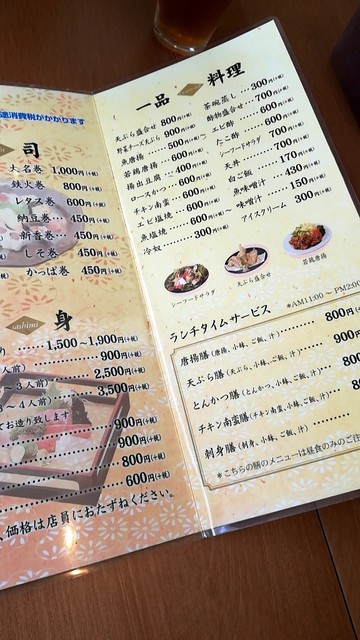 途消費税がかかります
司
大名巻 1,000円(+税)
鉄火巻 800円(+税)
レタス巻 600円(+税)
納豆巻 450円(+税)
新香巻 450円(+税)
しそ巻 450円(+税)
かっぱ巻 450円(+税)
sashimi
身
1,500~1,900円(+税)
900円(+税)
2,500円(+税)
3人前) 3,500円(+税)
~4人前)
てお造り致します
900円(+税)
900円(+税)
800円(+税)
600円(+税)
、価格は店員におたずねください。
一品料理
天ぷら盛合せ 800円(+税)
野菜チーズ天ぷら 900円(+税)
魚唐揚 500円(+税)~
若鶏唐揚 600円(+税)
揚出豆腐 400円(+税)
ロースかつ 600円(+税)
チキン南蛮 600円(+税)
エビ塩焼 600円(+税)~
魚塩焼 600円(+税)~
冷奴 300円(+税)
茶碗蒸し 300円(+税)
酢物盛合せ 700円(+税)
エビ酢 600円(+税)
たこ酢 600円(+税)
シーフードサラダ 700円(+税)
天丼 700円(+税)
白ご飯 170円(+税)
魚味噌汁 430円(+税)
味噌汁 150円(+税)
アイスクリーム 300円(+税)
シーフードサラダ
天ぷら盛合せ
若鶏唐揚
ランチタイムサービス *AM11:00~PM2:00
唐揚膳(唐揚、小鉢、ご飯、汁) 800円(+税)
天ぷら膳(天ぷら、小鉢、ご飯、汁) 900円
とんかつ膳(とんかつ、小鉢、ご飯、汁)
チキン南蛮膳(チキン南蛮、小鉢、ご飯、汁)
刺身膳(刺身、小鉢、ご飯、汁)
*こちらの膳のメニューは昼食のみのご注